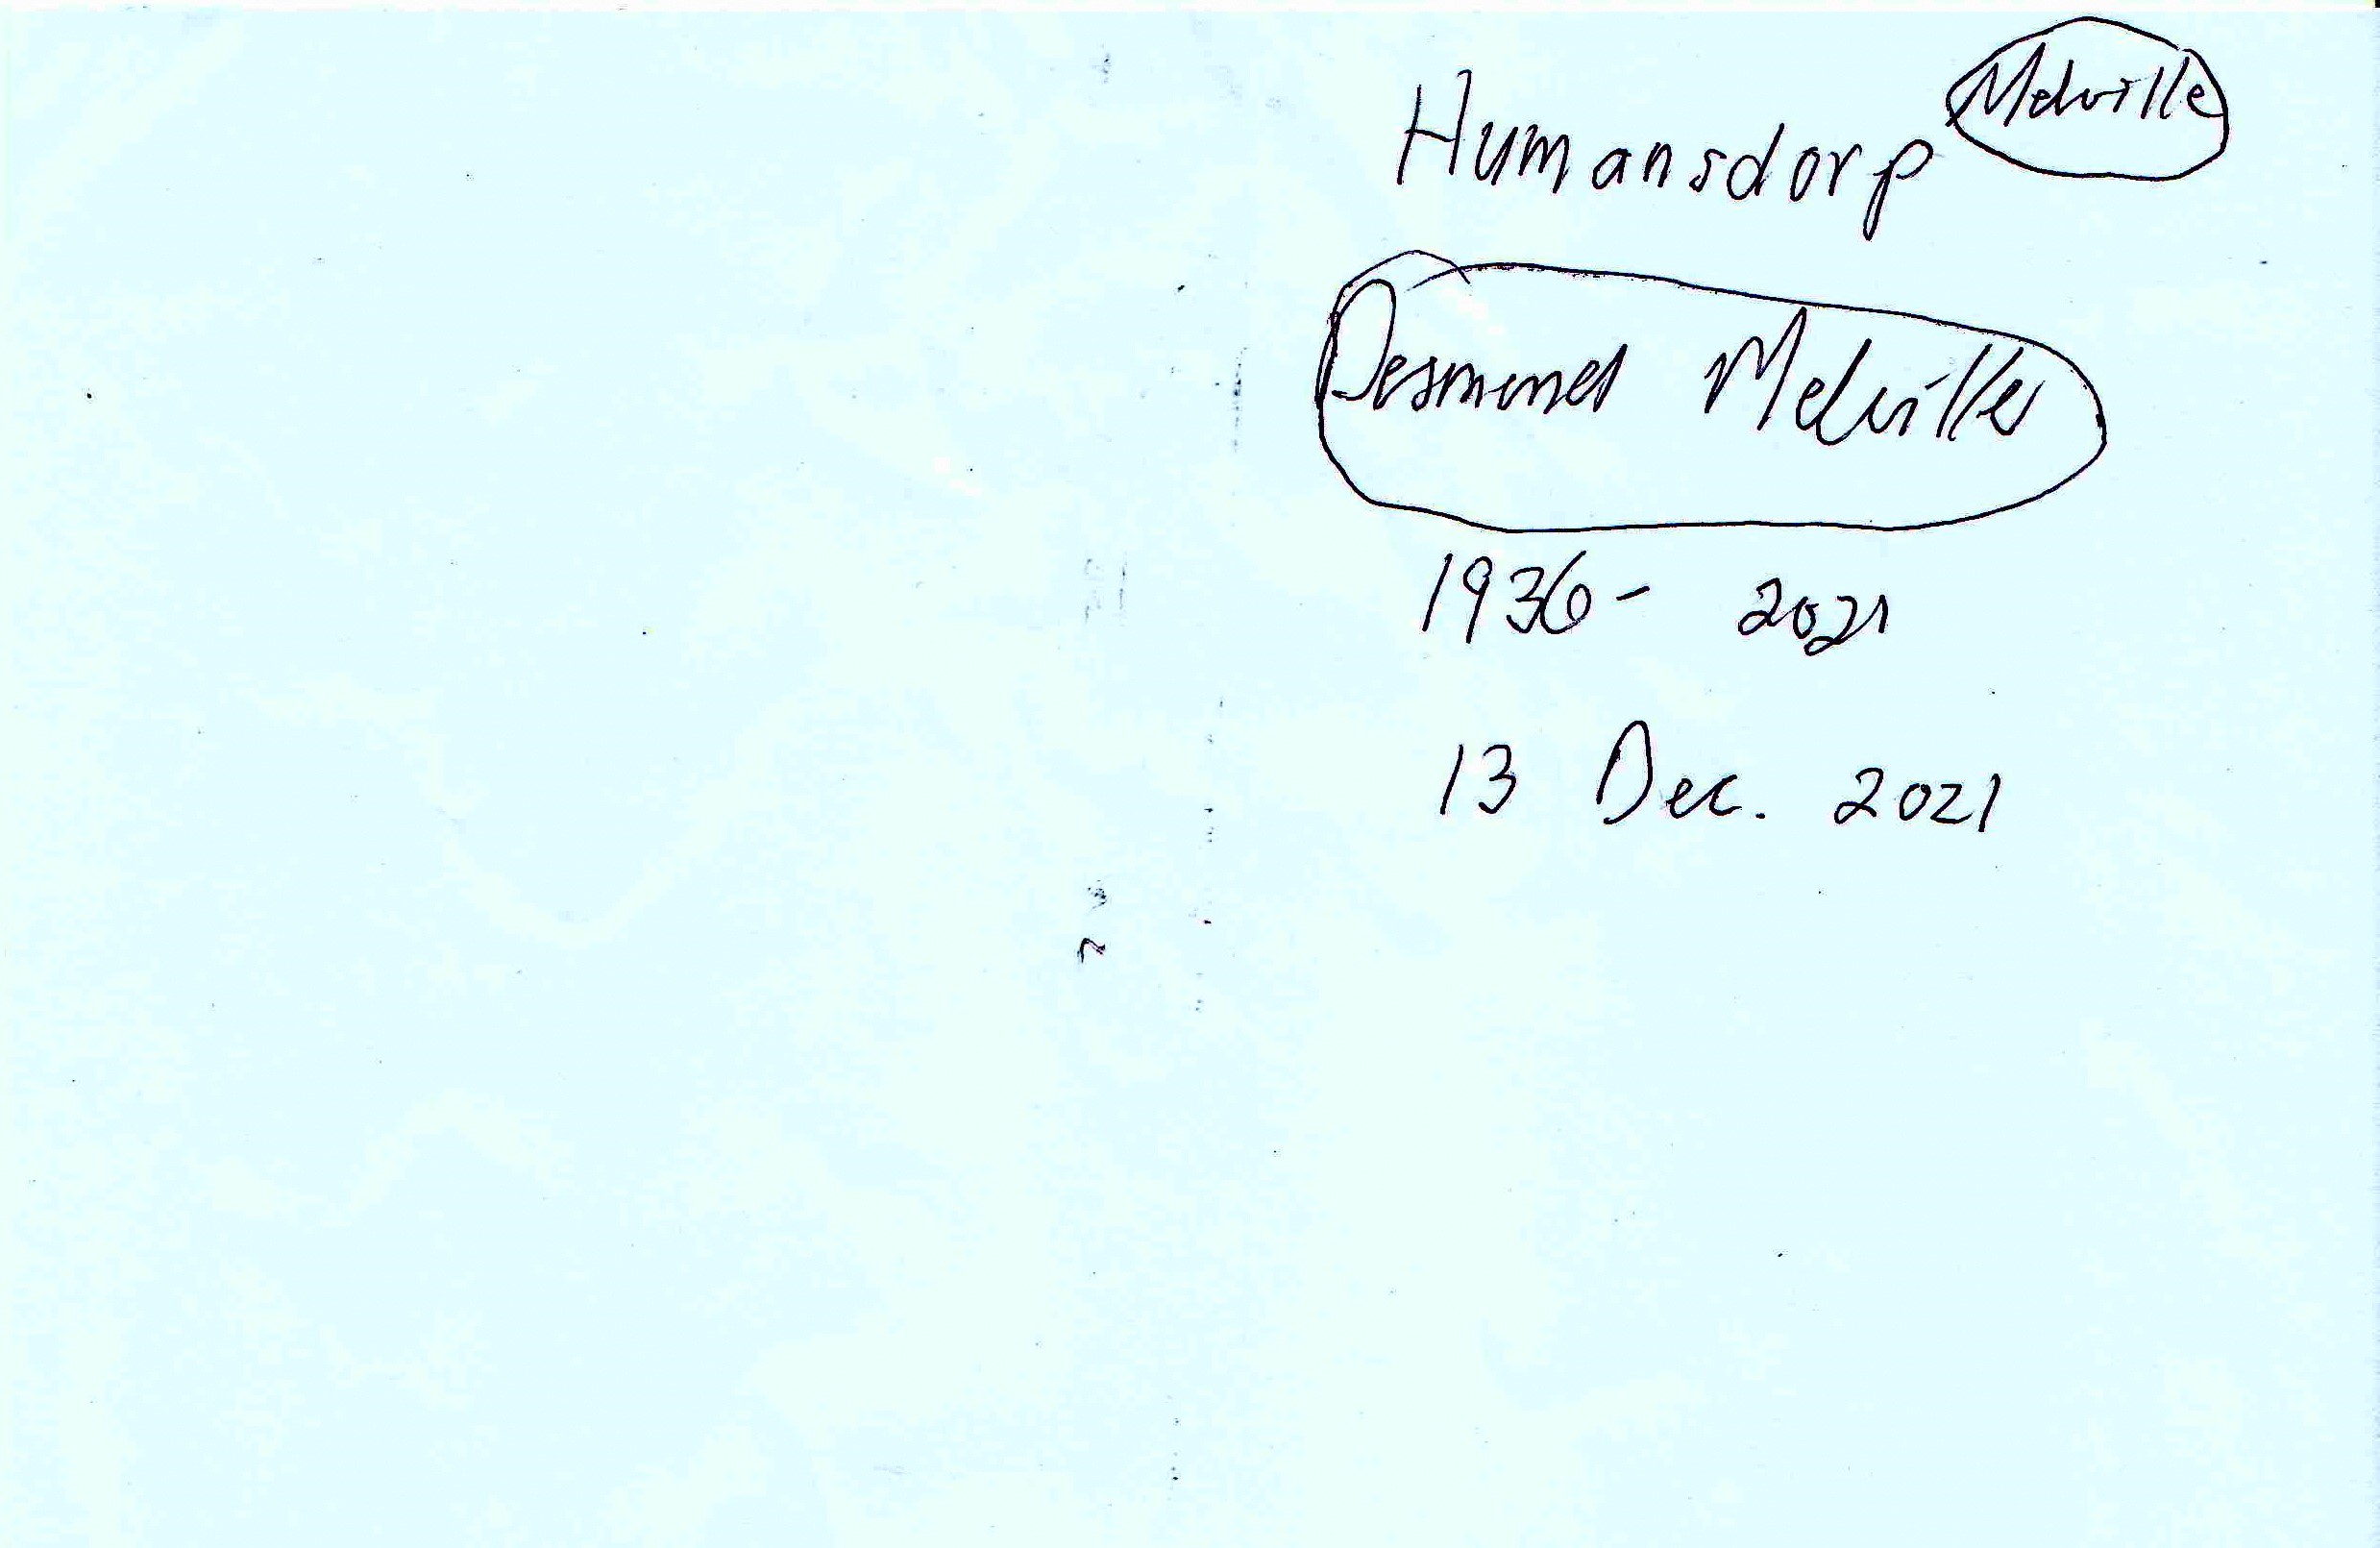 Melville
Humansdorp
Desmond Melville
1936 - 2021
13 Dec. 2021